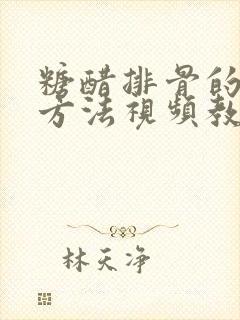 糖醋排骨的
方法視頻教
林天净